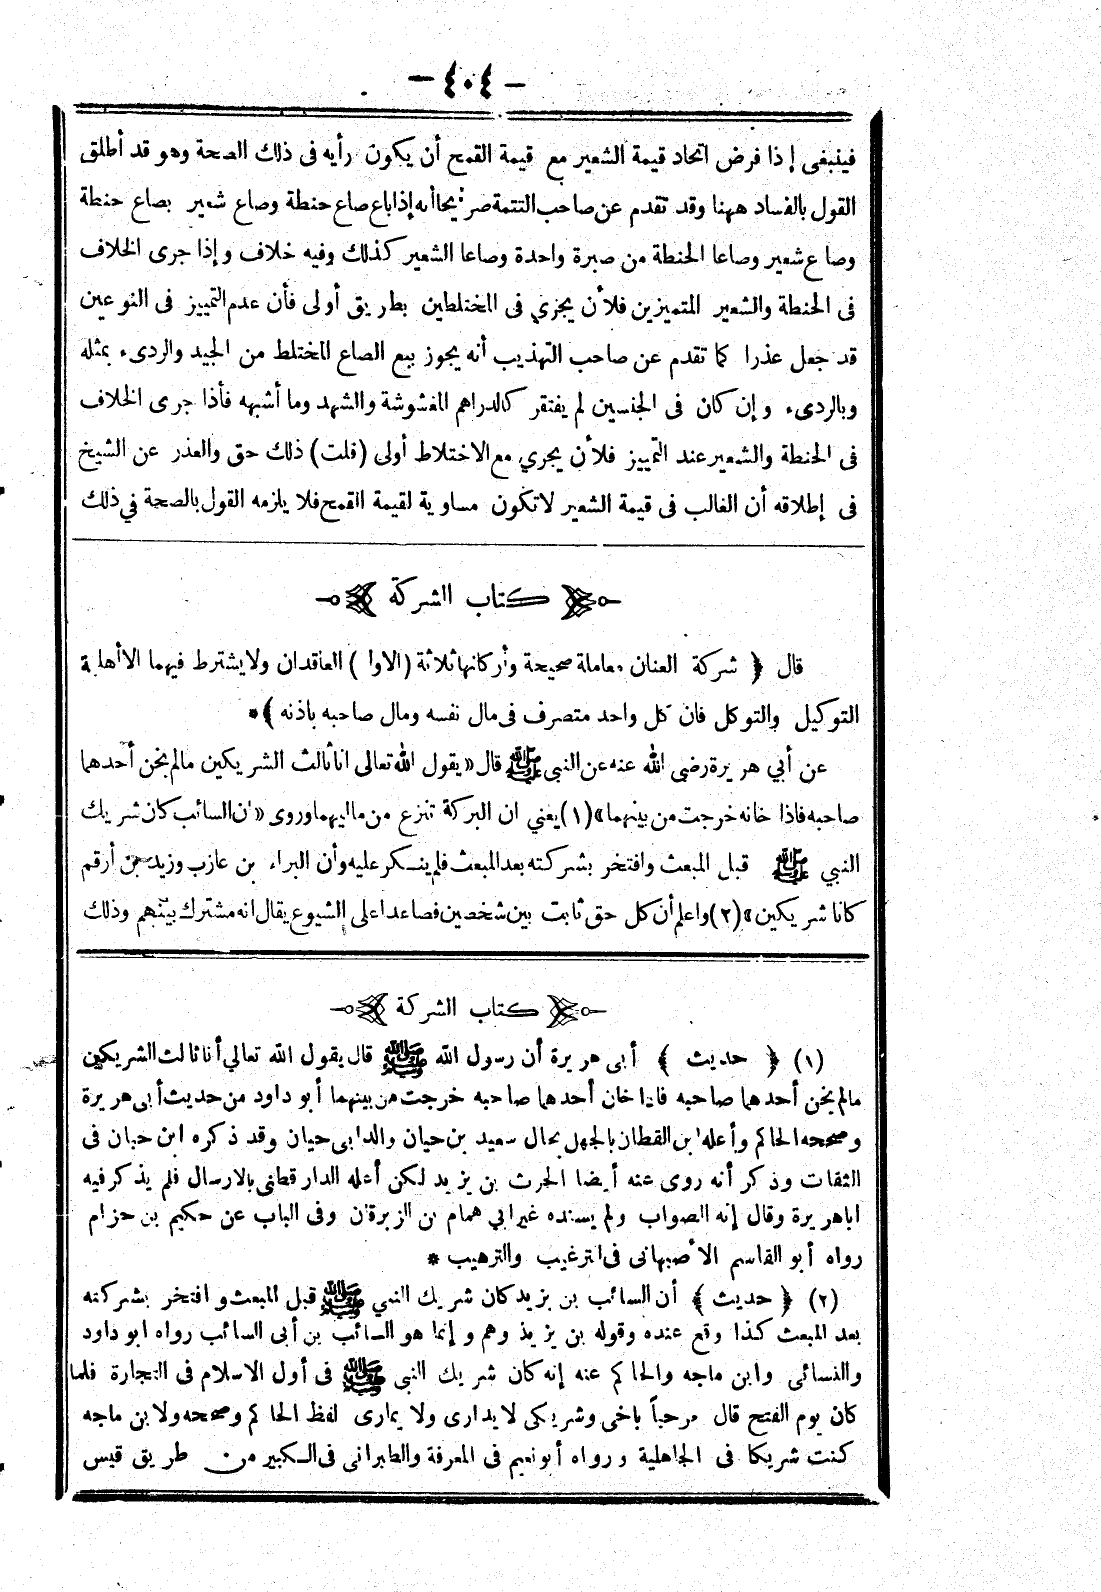 - ٤٠٤ -
فينبغى إذا فرض اتحاد قيمة الشعير مع قيمة القمح أن يكون رأيه فى ذلك الصحة وهو قد أطلق
القول بالفساد ههنا وقد تقدم عن صاحب التتمة صريحا أنه إذا باع صاع حنطة وصاع شعير بصاع حنطة
وصاع شعير وصاعا الحنطة من صبرة واحدة وصاعا الشعير كذلك وفيه خلاف وإذا جرى الخلاف
فى الحنطة والشعير المتميزين فلأن يجزي فى المختلطين بطريق أولى فأن عدم التمييز فى النوعين
قد جعل عذرا كما تقدم عن صاحب التهذيب أنه يجوز بيع الصاع المختلط من الجيد والردىء بمثله
وبالردىء وإن كان فى الجنسين لم يفتقر كالدراهم المغشوشة والشهد وما أشبهه فأذا جرى الخلاف
فى الحنطة والشعير عند التمييز فلأن يجري مع الاختلاط أولى (قلت) ذلك حق والعذر عن الشيخ
فى إطلاقه أن الغالب فى قيمة الشعير لا تكون مساوية لقيمة القمح فلا يلزمه القول بالصحة في ذلك
كتاب الشركة
قال ﴿ شركة العنان معاملة صحيحة وأركانها ثلاثة (الاول) العاقدان ولا يشترط فيهما الا أهلية
التوكيل والتوكل فان كل واحد متصرف فى مال نفسه ومال صاحبه باذنه ﴾*
عن أبي هريرة رضى الله عنه عن النبى ﷺ قال «يقول الله تعالى انا ثالث الشريكين مالم يخن أحدهما
صاحبه فاذا خانه خرجت من بينهما» (١) يعني ان البركة تنزع من ماليهما وروى «ان السائب كان شريك
النبي ﷺ قبل المبعث وافتخر بشركته بعد المبعث فلم ينكر عليه وأن البراء بن عازب وزيد بن أرقم
كانا شريكين» (٢) واعلم أن كل حق ثابت بين شخصين فصاعدا على الشيوع يقال انه مشترك بينهم وذلك
كتاب الشركة
(١) ﴿ حديث ﴾ أبى هريرة أن رسول الله ﷺ قال يقول الله تعالي أنا ثالث الشريكين
مالم يخن أحدهما صاحبه فاذا خان أحدهما صاحبه خرجت من بينهما أبو داود من حديث أبى هريرة
وصححه الحاكم وأعله ابن القطان بالجهل بحال سعيد بن حيان والد ابى حيان وقد ذكره ابن حبان فى
الثقات وذكر أنه روى عنه أيضا الحرث بن يزيد لكن أعله الدار قطنى بالارسال فلم يذكر فيه
اباهريرة وقال إنه الصواب ولم يسنده غير ابي همام بن الزبرقان وفى الباب عن حكيم بن حزام
رواه أبو القاسم الأصبهانى فى الترغيب والترهيب *
(٢) ﴿ حديث ﴾ أن السائب بن يزيد كان شريك النبي ﷺ قبل المبعث وافتخر بشركته
بعد المبعث كذا وقع عنده وقوله بن يزيد وهم وإنما هو السائب بن أبى السائب رواه ابو داود
والنسائى وابن ماجه والحاكم عنه إنه كان شريك النبى ﷺ فى أول الاسلام فى التجارة فلما
كان يوم الفتح قال مرحباً باخى وشريكى لا يدارى ولا يمارى لفظ الحاكم وصححه ولابن ماجه
كنت شريكا فى الجاهلية ورواه أبو نعيم فى المعرفة والطبرانى فى الكبير من طريق قيس